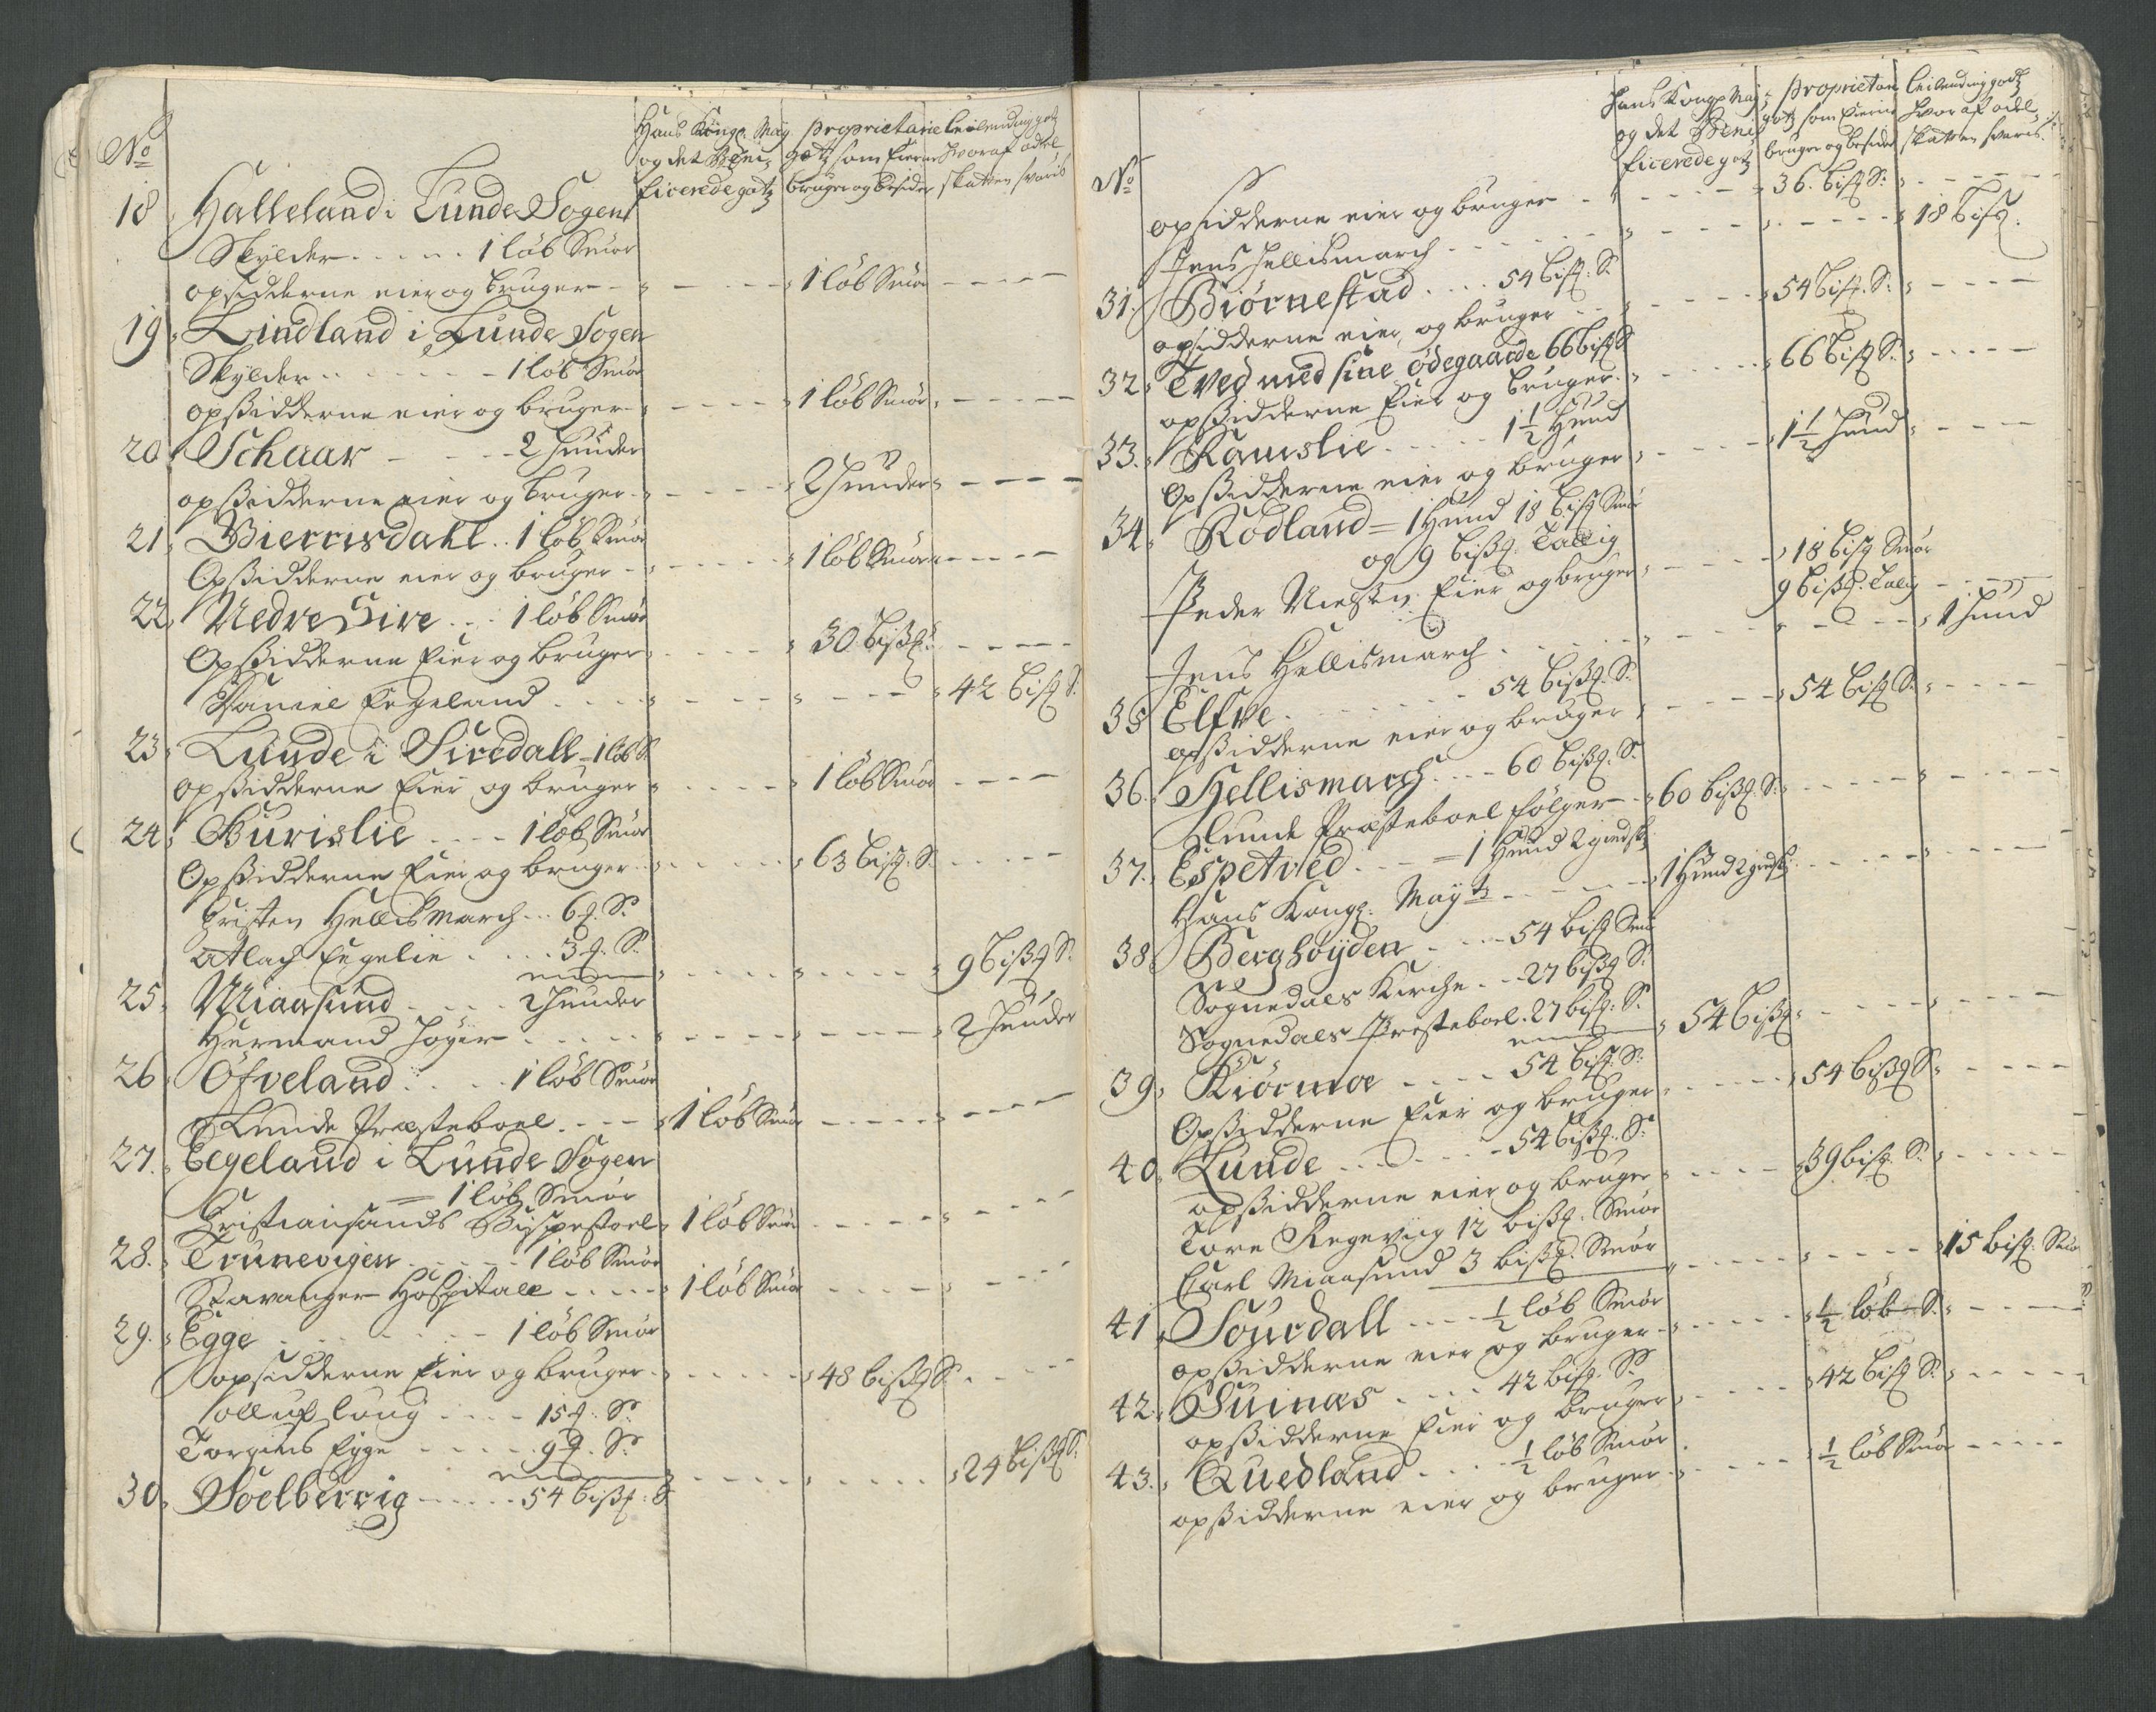 No
Hans Kongl. May
og det Beni-
ficerede gotz
proprietarie
gotz som Eierne
bruger og besider
leilendinggotz
Hvoraf odel
skatten svaris
18 Halleland i Lunde Sogen
Skylder - - - - - 1 løb Smør
opsidderne eier og bruger - - - - - 1 løb Smør - - - -
19 Lindland i Lunde Sogen
Skylder - - - - - 1 løb Smør
opsidderne eier og bruger - - - - - 1 løb Smør - - - -
20 Schaar - - - - 2 Huuder
opsidderne eier og bruger - - - - - 2 Huuder - - - -
21 Bierrisdahl - - 1 løb Smør
Opsidderne eier og bruger - - - - - 1 løb Smør - - - -
22 Nedre Sire - - - 1 løb Smør
Opsidderne Eier og bruger - - - - 30 bissp: - - - -
Daniel Eegeland - - - - - - - - - 42 bisp S:
23 Lunde i Siredall - 1 løb S:
opsidderne Eier og bruger - - - - 1 løb Smør - - - -
24 Burislie - - - - 1 løb Smør
Opsidderne Eier og bruger - - - - - 63 bisp. S. - - - -
Cristen Hellismarch - - - 6 p. S:
Atlach Eegelie - - - - 3 p. S:
- - - - - - - - - 9 bissp S:
25 Miaasund - - - - 2 Huuder
Hermand Høyer - - - - - - - - - 2 Huuder
26 Ofveland - - - - 1 løb Smør
Lunde Præsteboel - - - - 1 løb Smør - - - - -
27. Eegeland i Lunde Sogen
= 1 løb Smør
Cristiansands Bispestoel 1 løb Smør - - - - -
28. Trunevigen - - - - - 1 løb Smør
Stavanger Hospitall - - - - - 1 løb Smør - - - - -
29. Egge - - - - - - 1 løb Smør
opsidderne Eier og bruger - - - - - 48 bissp S: - - - -
Olluf Loug - - - - 15 p. S:
Torgiuls Egge - - - - - 9 p. S:
- - - - - - - - - 24 bissp S:
30 Soelberrig - - - - - 54 bissp: S
No
Hans Kongl May
og det Beni
ficerede gotz
proprietarie
gotz som Eierne
bruger og besider
leilendinggodtz
Hvor af odel-
skatten svaris
opsidderne eier og bruger - - - - - 36. bisp S: - - - -
Jens Hellismarch - - - - - - - - - 18 bisp.
31. Biørnestad - - - - 54 bisp: S:
opsidderne eier og bruger - - - - - 54 bisp. S: - - - -
32. Tved med sine ødegaarde 66 bisp S
opsidderne Eier og bruger - - - - - 66 bisp S: - - - -
33. Ramslie - - - - 1 1/2 Huud
Opsidderne eier og bruger - - - - - 1 1/2 Huud - - - -
34. Rødland = 1 Huud 18 bisp Smør
og 9 bissp. Tallig
Peder Nielssøn Eier og bruger - - - - 18 bisp Smør
9 bissp. Talig - - - -
Jens Hellismarch - - - - - - - - - 1 Huud
35 Elfve - - - - - - 54 bissp. S:
opsidderne eier og bruger - - - - 54 bisp S: - - - -
36. Hellismarch - - - - 60 bissp. S:
Lunde Præsteboel følger - - 60 bissp. S: - - - - -
37. Espetved - - - = 1 Huud 2 giedsk:
Hans Kongl. Mayts - - - - - 1 Huud 2 giedsk: - - - - -
38 Berghøyden - - - - 54 bisp Smør
Sognedals Kirche - - - 27 bissp S:
Sognedals Presteboel. 27 bisp. S:
54 bissp: - - - - -
39. Kiørmoe - - - - 54 bisp. S:
Opsidderne Eier og bruger - - - - - 54 bissp S: - - - -
40. Lunde - - - - - - 54 bissp. S:
opsidderne eier og bruger - - - - 39 bisp. S: - - - -
Tore Regeviig 12 bissp: Smør
Carl Miaasund 3 bissp. Smør
- - - - - - - - - 15 bisp. Smør
41. Sourdall - - - - 1/2 løb Smør
opsidderne eier og bruger - - - - - 1/2 løb S: - - - -
42. Suinæs - - - - 42 bisp. S:
opsidderne Eier og bruger - - - - - 42 bisp S: - - - -
43. Quedland - - - - 1/2 løb Smør
opsidderne eier og bruger - - - - - 1/2 løb Smør - - - -